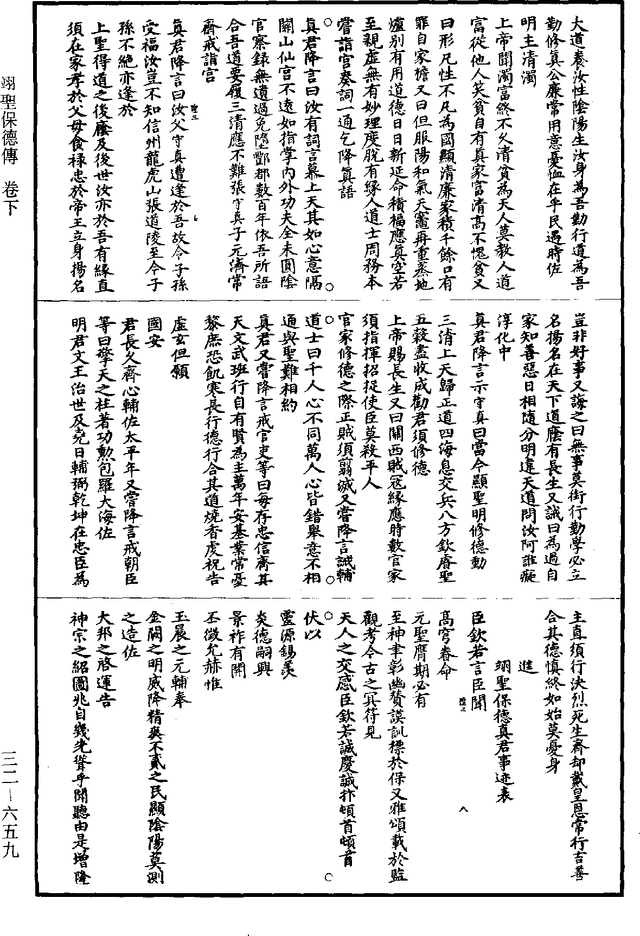 大道養汝性陰陽生汝身為吾勤行道為吾
勤修真公廉常用意憂恤在乎民遇時佐
明主清濁
上帝聞濁富終不久清貧為天人莫教人道
富從他人笑貧自有真家富清高不愧貧又
曰形凡性不凡為國顯清廉家積千餘口有
罪自家擔又曰但服陽和氣天竈再重蒸地
爐別有用道德日日新延命積福應真空若
至親虛無有妙理度脫有緣人道士周務本
嘗詣宮奏詞一通乞降真語
真君降言曰汝有詞言慕上天其如心意隔
關山仙官不遠如指掌內外功夫全未圓陰
官察錄無遺過免墮酆都數百年依吾所語
合吾道要履三清應不難張守真子元濟常
齋戒詣宮
真君降言曰汝父守真遭逢於吾故令子孫
受福汝豈不知信州龍虎山張道陵至今子
孫不絕亦逢於
上聖得道之後慶及後世汝亦於吾有緣直
須在家孝於父母食祿忠於帝王立身揚名
豈非好事又誨之曰無事莫街行勤學必立
名揚名在天下道應有長生又誡曰為過自
家知善惡日相隨分明違天道問汝阿誰癡
淳化中
真君降言示守真曰當今顯聖明修德動
三清上天歸正道四海息交兵八方欽睿聖
五穀盡收成勸君須修德
上帝賜長生又曰關西賊寇緣應時數官家
須指揮招捉使臣莫殺平人
官家修德之際正賊須翦滅又嘗降言誡輔
道士曰千人心不同萬人心皆錯舉意不相
通與聖難相約
真君又嘗降言戒官吏等曰每存忠信齋其
天文武班行自有賢為主萬年安基業常憂
黎庶恐飢寒長行德行合其道燒香虔祝告
虛玄但願
國安
君長久齊心輔佐太平年又嘗降言戒朝臣
等曰擎天之柱著功勳包羅大海佐
明君文王治世及堯日輔弼乾坤在忠臣為
主直須行決烈死生齊却戴皇恩常行吉善
合其德慎終如始莫憂身
進
翊聖保德真君事迹表
臣欽若言臣聞
高穹眷命
元聖膺期必有
至神聿彰幽贊謨訓標於保乂雅頌載於監
觀考今古之冥符見
天人之交感臣欽若誠慶誠抃頓首頓首
伏以
靈源錫羨
炎德嗣興
景祚有開
丕徵允赫惟
玉晨之元輔奉
金闕之明威降精爽不貳之民顯陰陽莫測
之造佐
大邦之啓運告
神宗之紹圖兆自幾先聳乎聞聽由是增隆
翊聖保德傳 卷下
三二—六五九